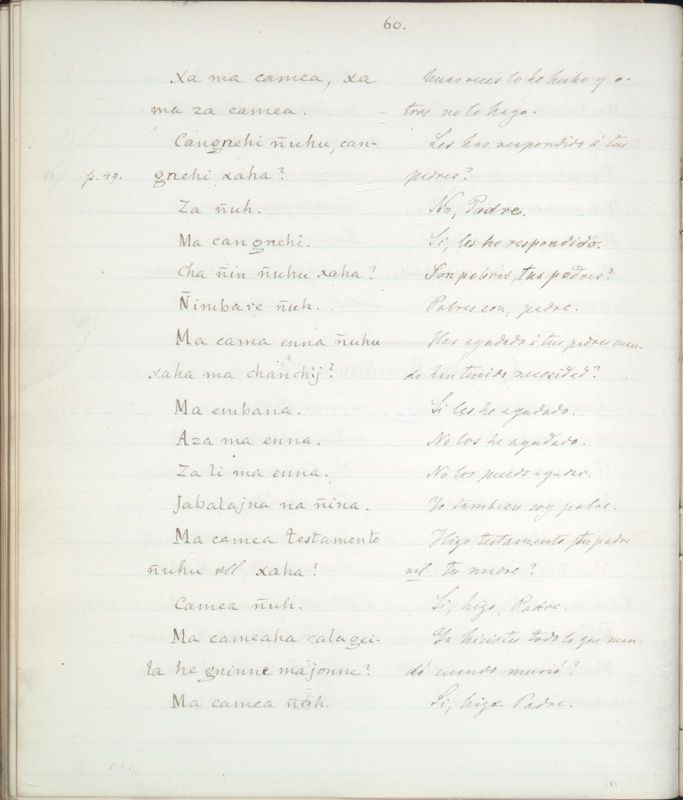 60.
Xa ma camea, xa
ma za camea.
Cangnehi ñuhu, can-
p. 49.
gnehi xaha?
Za ñuh.
Ma cangnehi.
Cha ñin ñuhu xaha?
Ñimbare ñuh.
Ma cama enna ñuhu
xaha ma chanchij?
Ma embana.
Aza ma enna.
Za li ma enna.
Jabalajna na ñina.
Ma camea testamento
ñuhu vel xaha?
Camea ñuh.
Ma cameaha calagei-
la he gninne majonne?
Ma camea ñuh.
Unas veces lo he hecho y o-
tras no lo hago.
Les has respondido á tus
padres?
No, Padre.
Si, les he respondido.
Son pobres, tus padres?
Pobres son, padre.
Has ayudado á tus padres cuan-
do han tenido necesidad?
Si les he ayudado.
No los he ayudado.
No los puedo ayudar.
Yo tambien soy pobre.
Hizo testamento tu padre
vel tu madre?
Si, hizo, Padre.
Ya hicistes todo lo que man-
dó cuando murió?
Si, hize Padre.